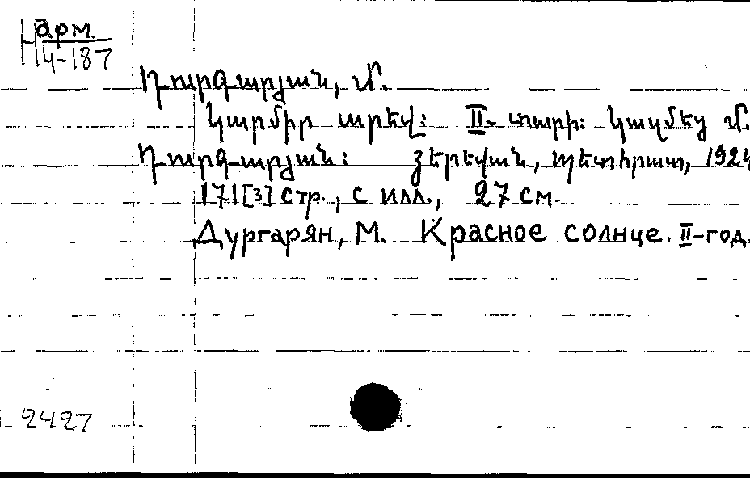 арм.
14-187
Դուրգարյան, Մ.
Կարմիր արեվ: II- տարի: Կազմեց Մ.
Դուրգարյան: Յերեվան, պետհրատ, 192
171[3] стр., с илл., 27 см.
Дургарян, М. Красное солнце. II-год.
2427